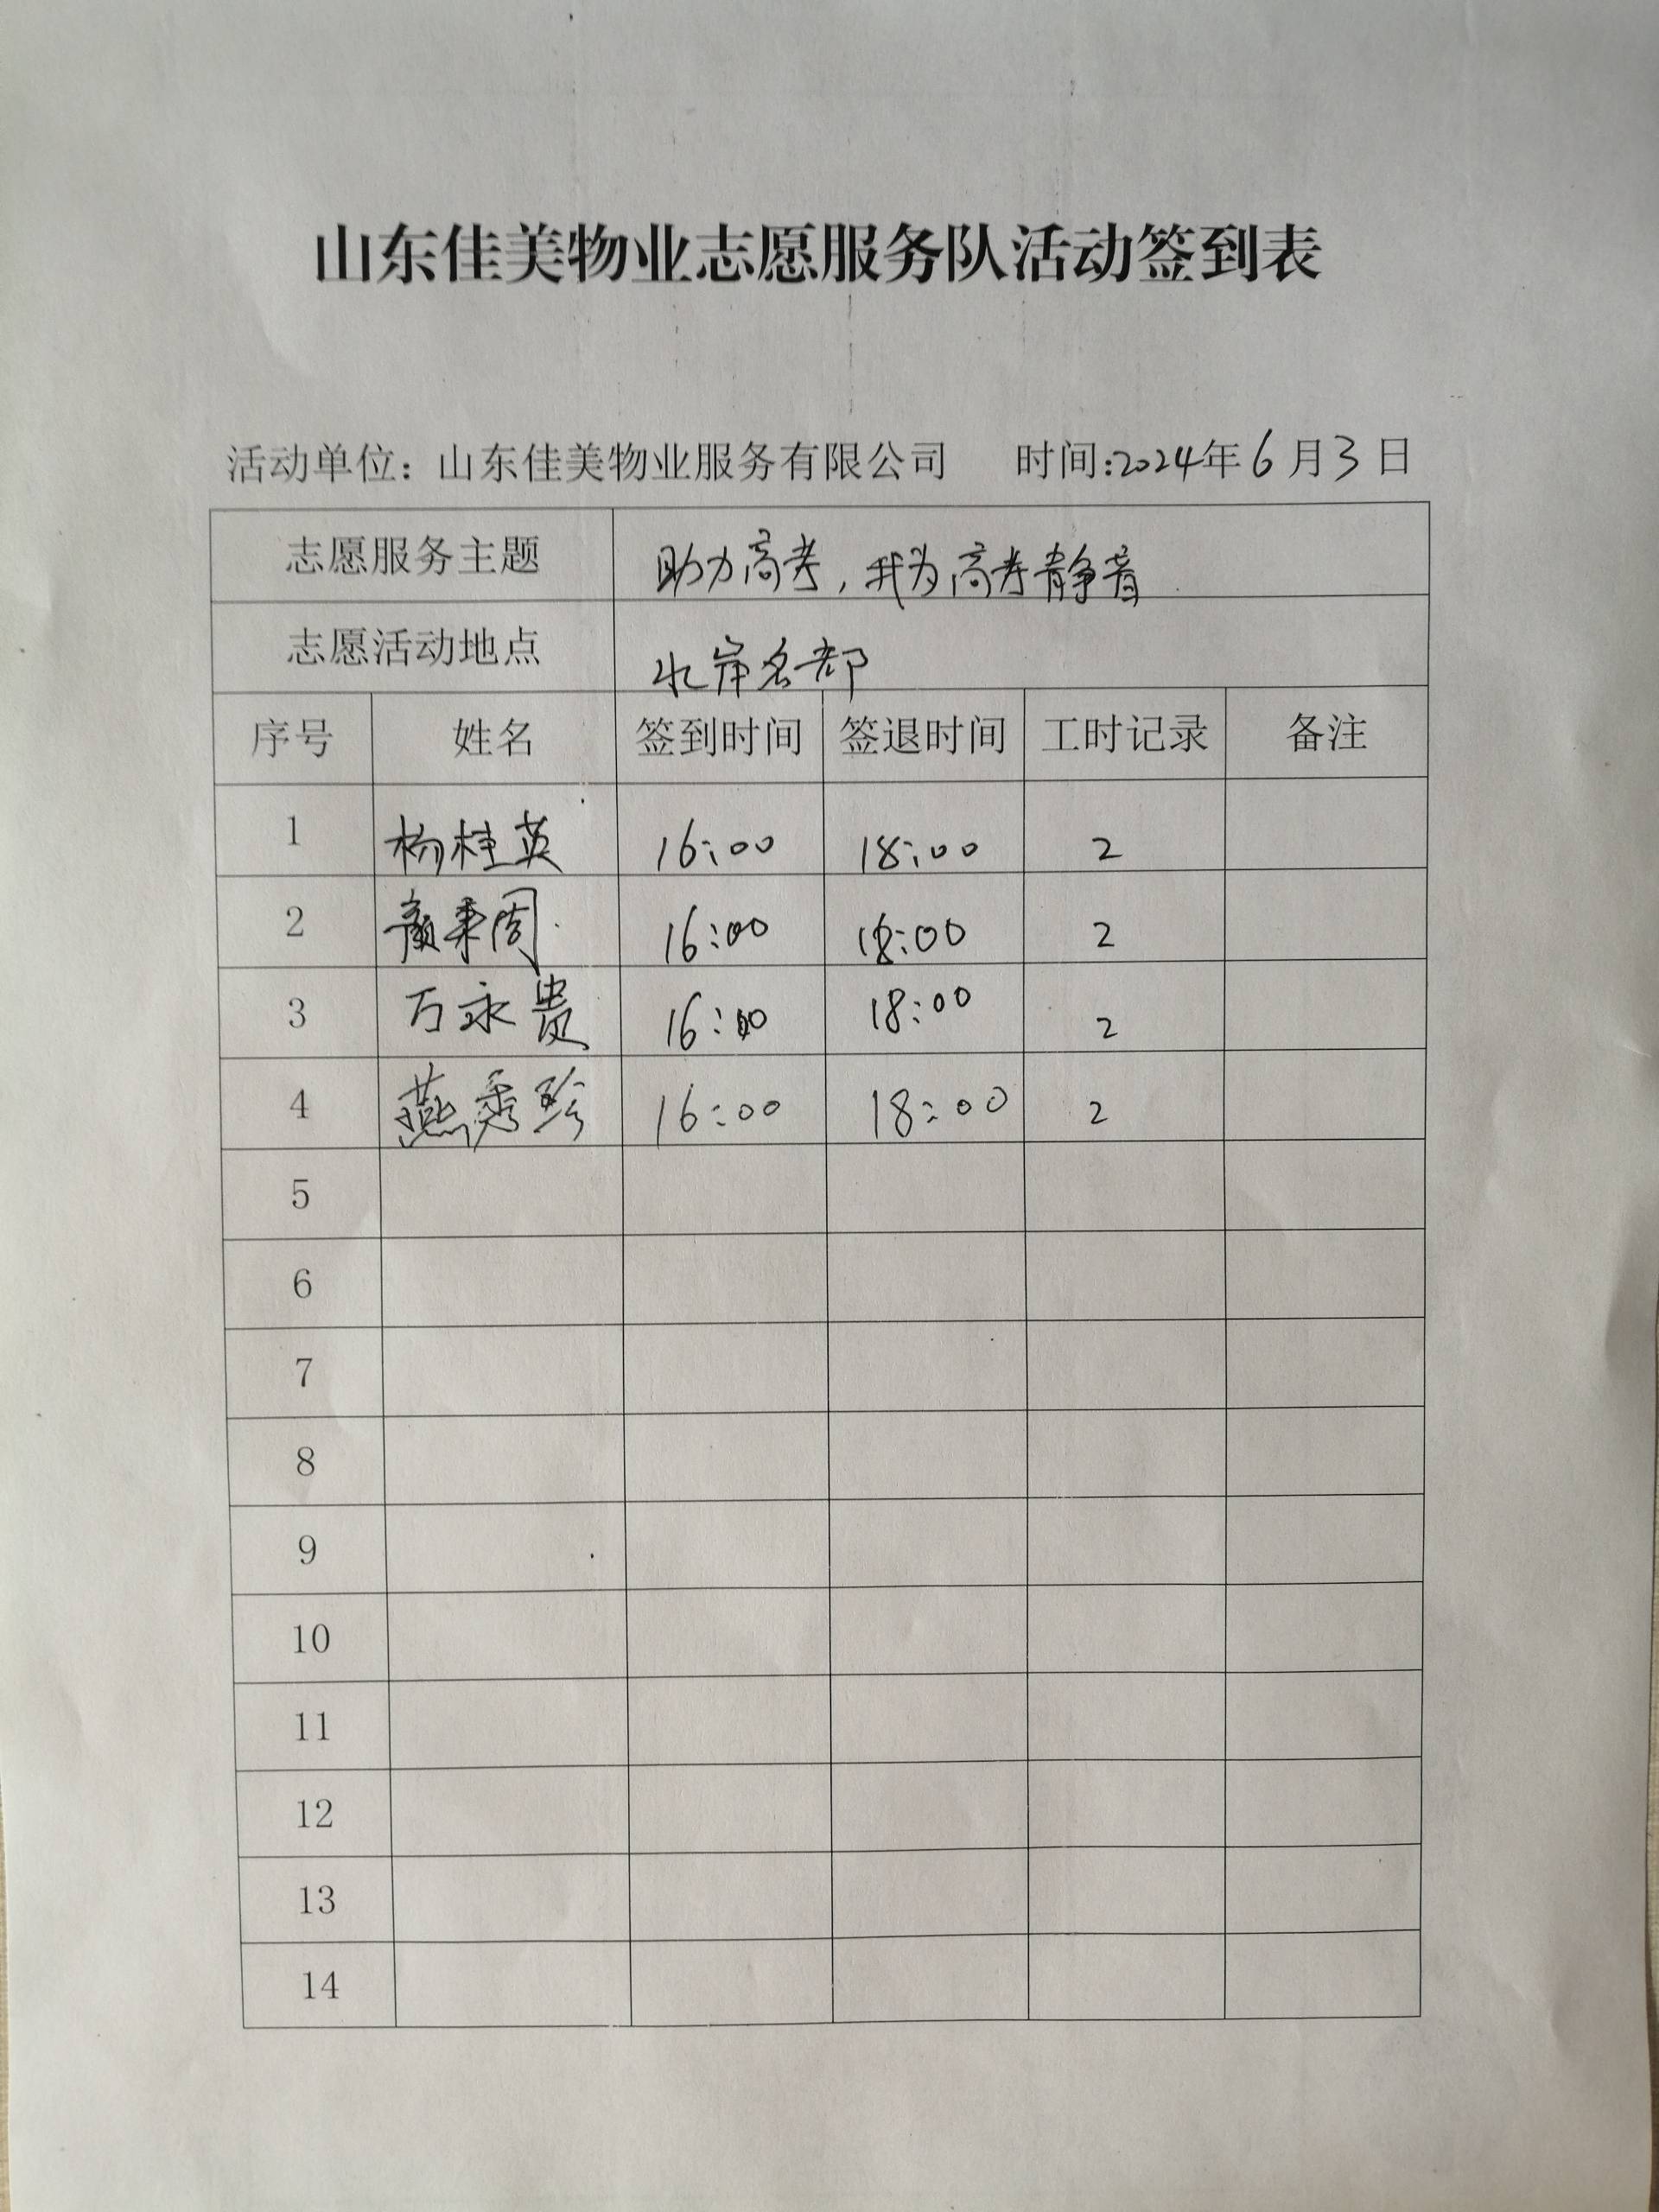 山东佳美物业志愿服务队活动签到表
活动单位：山东佳美物业服务有限公司 时间:2024年6月3日
志愿服务主题 助力高考，我为高考静音
志愿活动地点 水岸名都
序号 姓名 签到时间 签退时间 工时记录 备注
1 杨桂英 16:00 18:00 2
2 颜秉周 16:00 18:00 2
3 万永贵 16:00 18:00 2
4 燕秀珍 16:00 18:00 2
5
6
7
8
9
10
11
12
13
14